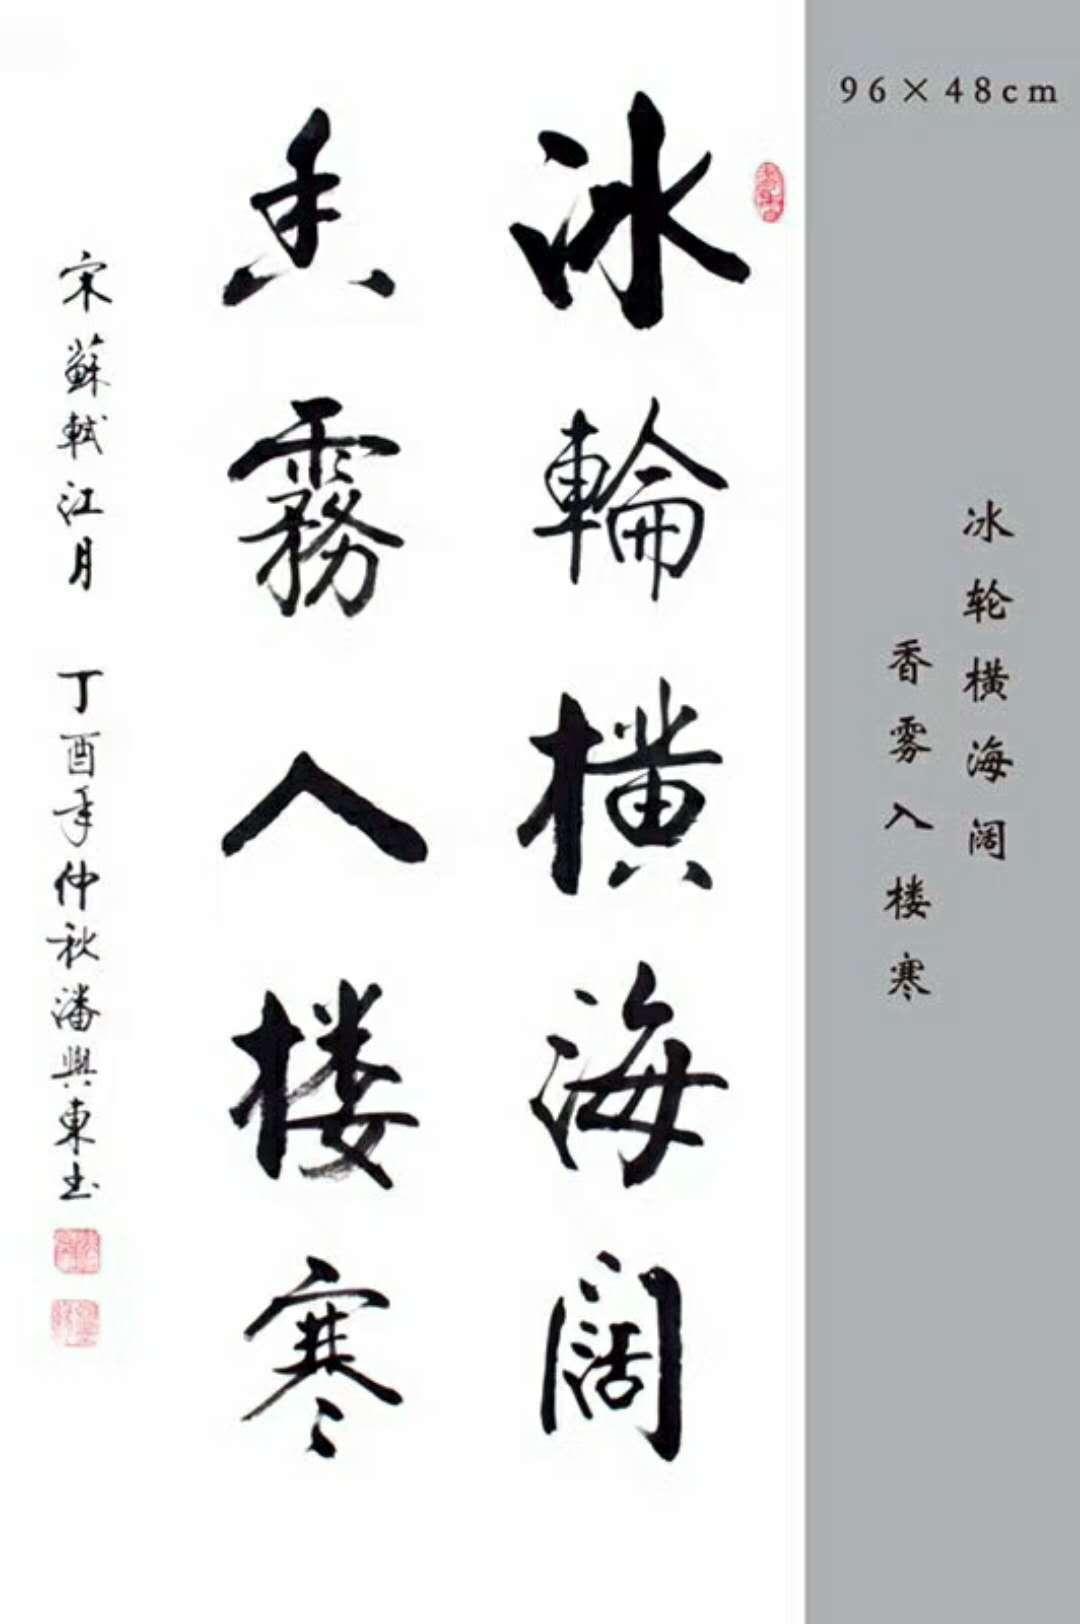 96×48cm
冰轮横海阔
香雾入楼寒
冰輪横海阔
香霧入楼寒
宋蘇軾江月 丁酉年仲秋潘興東书